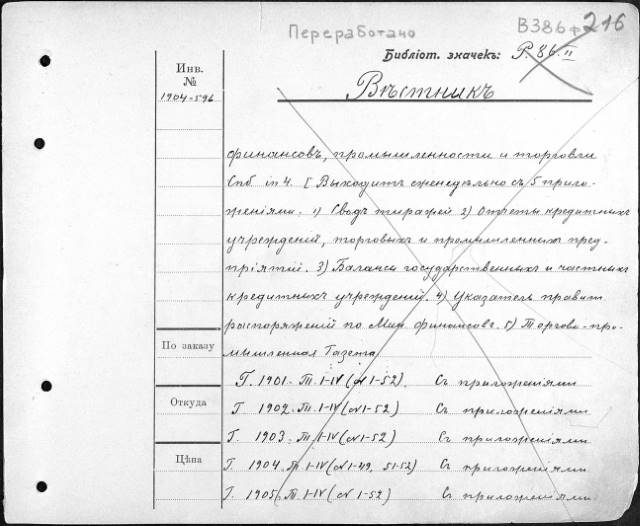 Переработано
В386+216
Библіот. значекъ: Р. 86. II
Инв. №
1904-596
Вѣстникъ
финансовъ, промышленности и торговли
Спб. in 4. [Выходитъ еженедѣльно съ 5 прило-
женіями. 1) Сводъ тиражей 2) Отчеты кредитныхъ
учрежденій, торговыхъ и промышленныхъ пред-
пріятій. 3) Балансы государственныхъ и частныхъ
кредитныхъ учрежденій. 4) Указатель правит.
распоряженій по Мин. финансовъ. 5) Торгово-про-
мышленная Газета
По заказу
Откуда
Цѣна
Г. 1901. Т. I-IV (№ 1-52). Съ приложеніями
Г. 1902. Т. I-IV (№ 1-52) Съ приложеніями
Г. 1903. Т. I-IV (№ 1-52) Съ приложеніями
Г. 1904. Т. I-IV (№ 1-49, 51-52) Съ приложеніями
Г. 1905. Т. I-IV (№ 1-52) Съ приложеніями